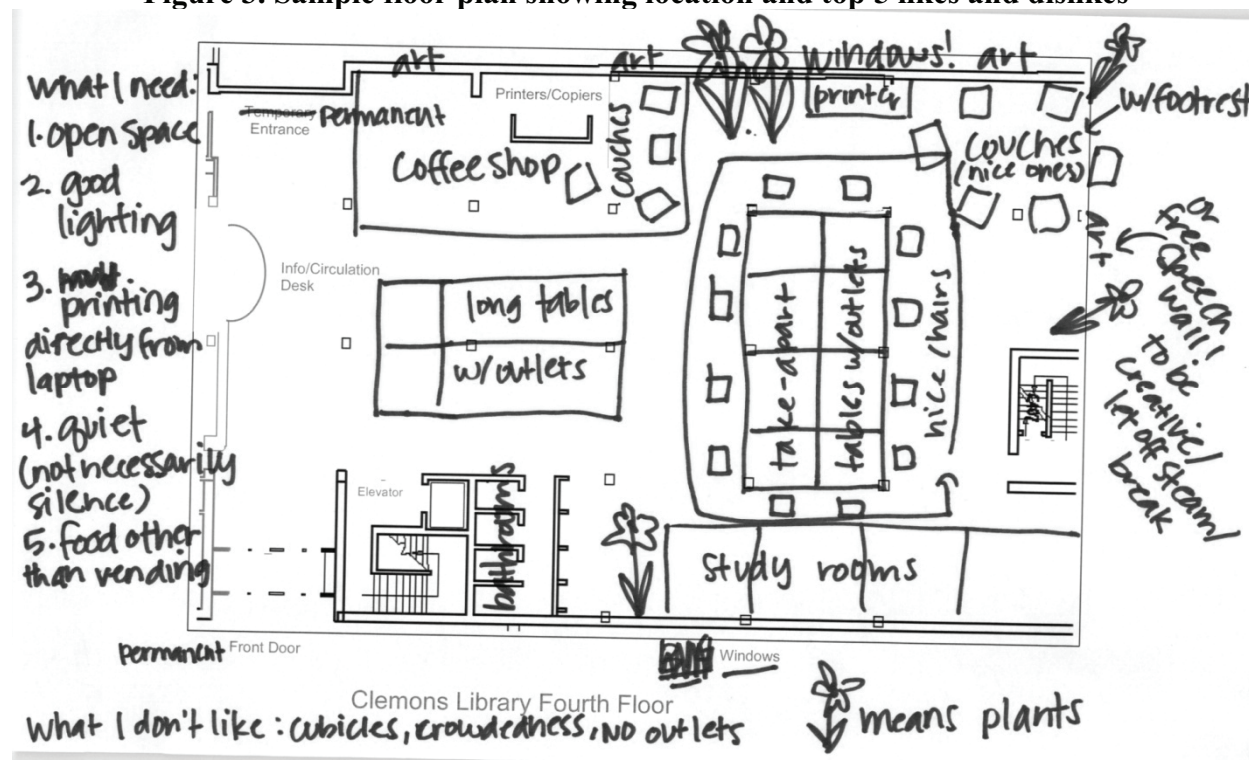 Figure 3. Sample floor plan showing location and top 5 likes and dislikes
art
art
windows! art
what I need:
1. open space
2. good
lighting
3.
printing
directly from
laptop
4. quiet
(not necessarily
silence)
5. food other
than vending
Temporary
Entrance
permanent
Printers/Copiers
coffee shop
couches
printer
w/footrest
couches
(nice ones)
Info/Circulation
Desk
long tables
w/outlets
take-apart
tables w/outlets
nice chairs
art
or
free
speech
wall!
to be
creative/
let off steam/
break
Elevator
bathrooms
study rooms
permanent
Front Door
Windows
Clemons Library Fourth Floor
what I don't like: cubicles, crowdedness, NO outlets
means plants